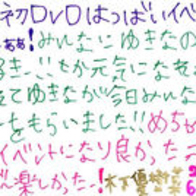 初DVDはつばいイベ
ぁぁ!みんなにゆきなの
好き…!!が元気になっ
えてゆきなが今日みんた
をもらいました!!めちゃ
イベントになり良かったこ
ど〜楽しかったー!木下優樹菜